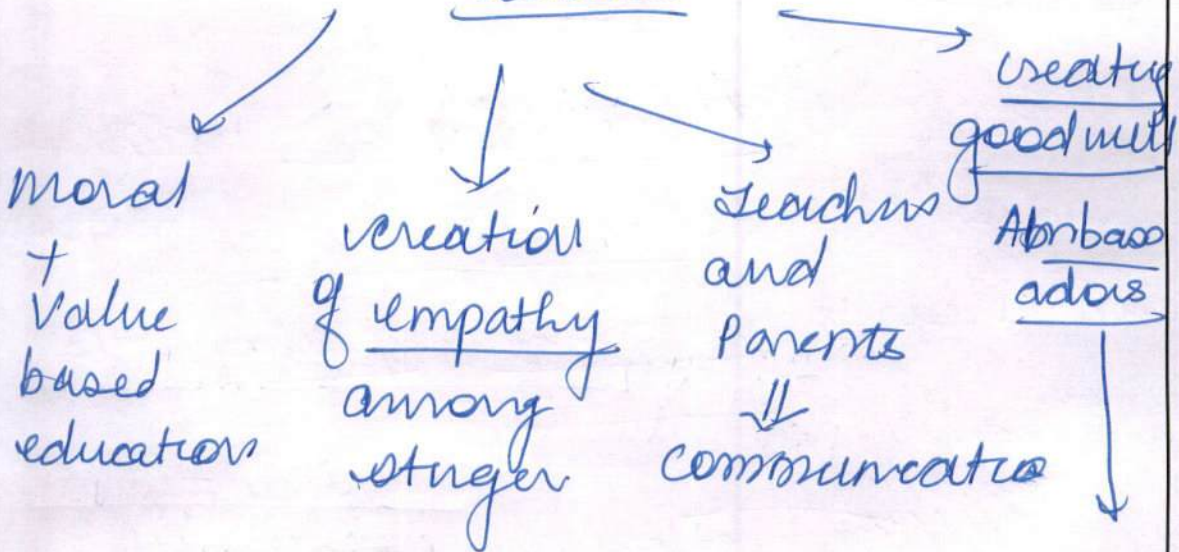 Moral
+
Value
based
education
creation
of empathy
among
stuger
Teachers
and
Parents
⇓
Communicatio
creating
goodwill
Ambass
adors